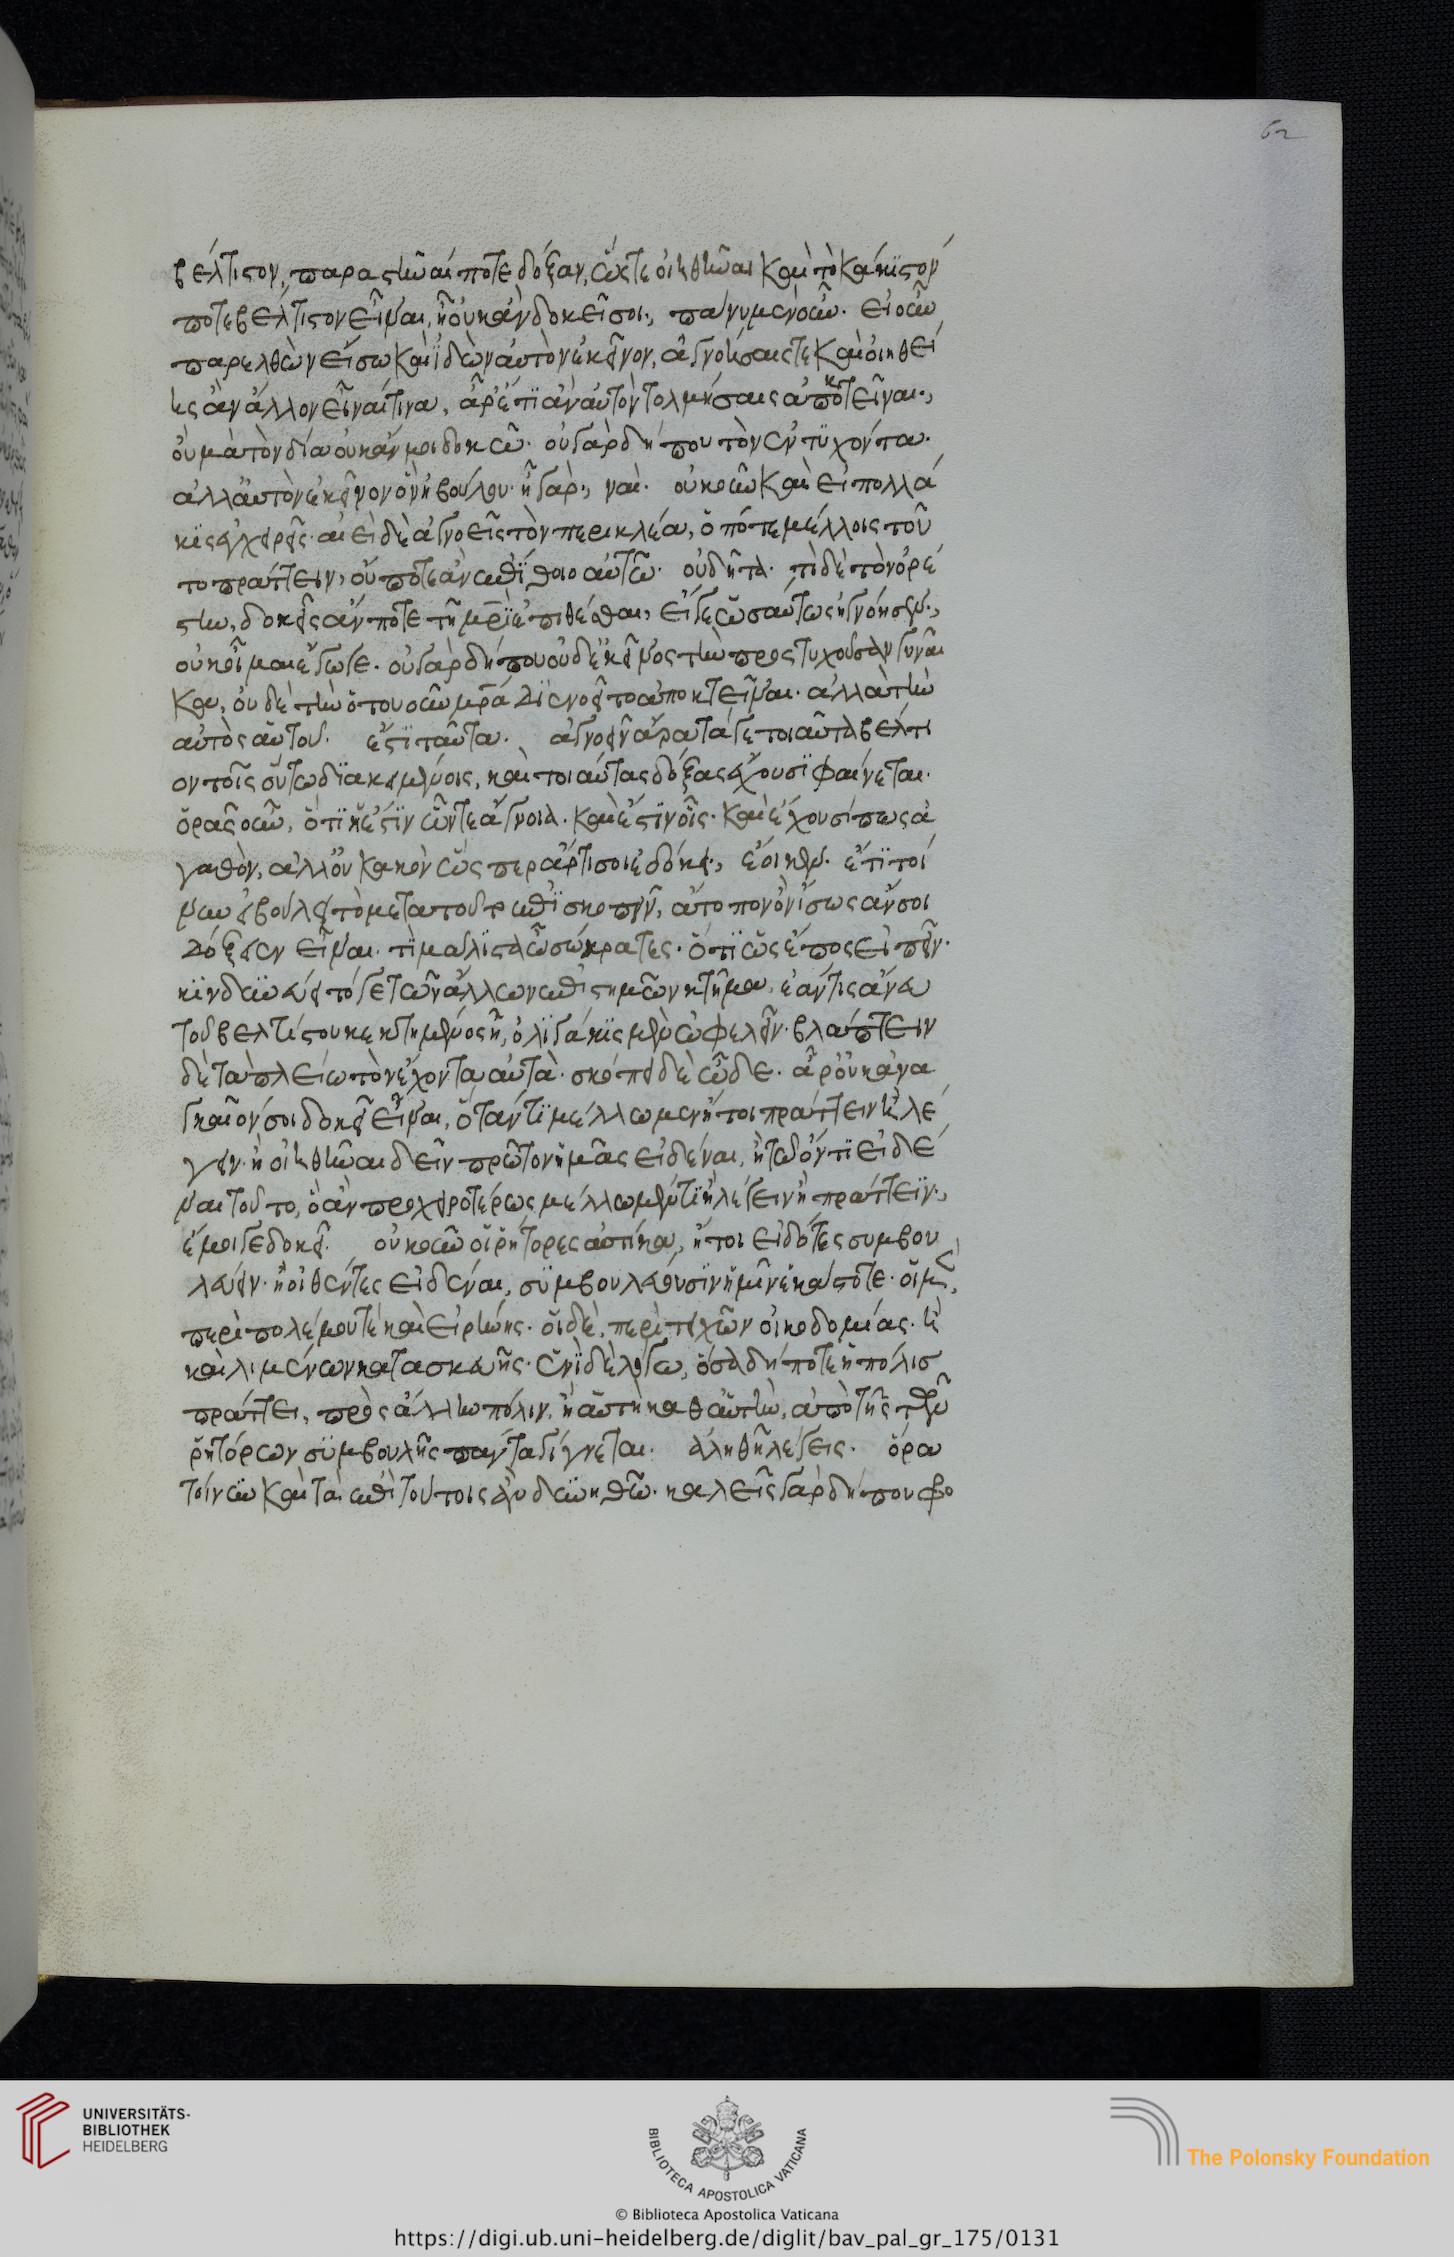 62
βέλτιστον, παραστῆναί ποτε δόξαν, ὥστε οἰηθῆναι καὶ τὸ κάκιστόν
ποτε βέλτιστον εἶναι, ἢ οὐκ ἂν δοκεῖ σοι., πάνυ μὲν οὖν. εἰ οὖν
παρελθὼν εἴσω καὶ ἰδὼν αὐτὸν ἐκεῖνον, ἀγνοήσαις τε καὶ οἰηθεί
ης ἂν ἄλλον εἶναί τινα, ἆρ' ἔτι ἂν αὐτὸν τολμήσαις ἀποκτεῖναι.,
οὐ μὰ τὸν δία οὐκ ἄν μοι δοκῶ. οὐ γὰρ δήπου τὸν ἐντυχόντα.
ἀλλ' αὐτὸν ἐκεῖνον ὃν ἠβούλου. ἦ γάρ., ναί. οὐκοῦν καὶ εἰ πολλά
κις ἐγχειρεῖς. αἰεὶ δὲ ἀγνοεῖς τὸν περικλέα, ὁπότε μέλλοις τοῦ
το πράττειν, οὔποτε ἂν ἐπίθοιο αὐτῶ. οὐδῆτα. τί δέ τὸν ὀρέ
στην, δοκεῖς ἄν ποτε τῇ μρὶ ἐπιθέσθαι, εἴγε ὡσαύτως ἠγνόησεν.,
οὐκ οἶμαι ἔγωγε. οὐ γὰρ δήπου οὐδ' ἐκεῖνος τὴν προστυχοῦσαν γυναῖ
κα, οὐδὲ τὴν ὅτου οὖν μρα διενοεῖτο ἀποκτεῖναι. ἀλλὰ τὴν
αὐτὸς αὑτοῦ. ἔστι ταῦτα. ἀγνοεῖν ἄρα τά γε τοιαῦτα βέλτι
ον τοῖς οὕτω διακειμένοις, καὶ τοιαύτας δόξας ἔχουσι φαίνεται.
ὁρᾷς οὖν, ὅτι ἡ ἔστιν ὧν τε ἄγνοια. καὶ ἔστιν οἷς. καὶ ἔχουσί πως ἀ
γαθὸν, ἀλλ' οὐ κακὸν ὥσπερ ἄρτι σοι ἐδόκει., ἔοικεν. ἔτι τοί
νυν εἰ βούλει τὸ μετὰ τοῦτο ἐπισκοπεῖν, ἄτοπον ὂν ἴσως ἄν σοι
δόξειεν εἶναι. τί μάλιστα ὦ σώκρατες. ὅτι ὡς ἔπος εἰπεῖν.
κινδυνεύει τό γε τῶν ἄλλων ἐπιστημῶν κτῆμα, ἐάν τις ἄνευ
τοῦ βελτίστου κεκτημένος ᾖ, ὀλιγάκις μὲν ὠφελεῖν. βλάπτειν
δὲ τὰ πλείω τὸν ἔχοντα αὐτά. σκόπει δὲ ὧδε. ἆρ' οὐκ ἀνα
γκαῖόν σοι δοκεῖ εἶναι, ὅταν τι μέλλωμεν ἤτοι πράττειν ἢ λέ
γειν. ἢ οἰηθῆναι δεῖν πρῶτον ἡμᾶς εἰδέναι, ἢ τῷ ὄντι εἰδέ
ναι τοῦτο, ὃ ἂν προχειροτέρως μέλλωμέν τι ἢ λέγειν ἢ πράττειν.,
ἔμοιγε δοκεῖ. οὐκοῦν οἱ ῥήτορες αὐτίκα, ἤτοι εἰδότες συμβου
λεύειν. ἢ οἰηθέντες εἰδέναι, συμβουλεύουσιν ἡμῖν ἑκάστοτε. οἱ μὲν,
περὶ πολέμου τὲ καὶ εἰρήνης. οἱ δὲ, περὶ τειχῶν οἰκοδομίας. ἢ
καὶ λιμένων κατασκευῆς. ἑνὶ δὲ λόγω, ὅσα δήποτε ἡ πόλισ
πράττει, πρὸς ἄλλην πόλιν, ἢ αὐτὴ καθ' αὑτὴν, ἀπὸ τῆς τῶν
ῥητόρων συμβουλῆς πάντα γίγνεται. ἀληθῆ λέγεις. ὅρα
τοίνυν καὶ τὰ ἐπὶ τούτοις ἂν δυνηθῶ. καλεῖς γὰρ δήπου φρο
UNIVERSITÄTS-
BIBLIOTHEK
HEIDELBERG
BIBLIOTECA APOSTOLICA VATICANA
The Polonsky Foundation
© Biblioteca Apostolica Vaticana
https://digi.ub.uni-heidelberg.de/diglit/bav_pal_gr_175/0131